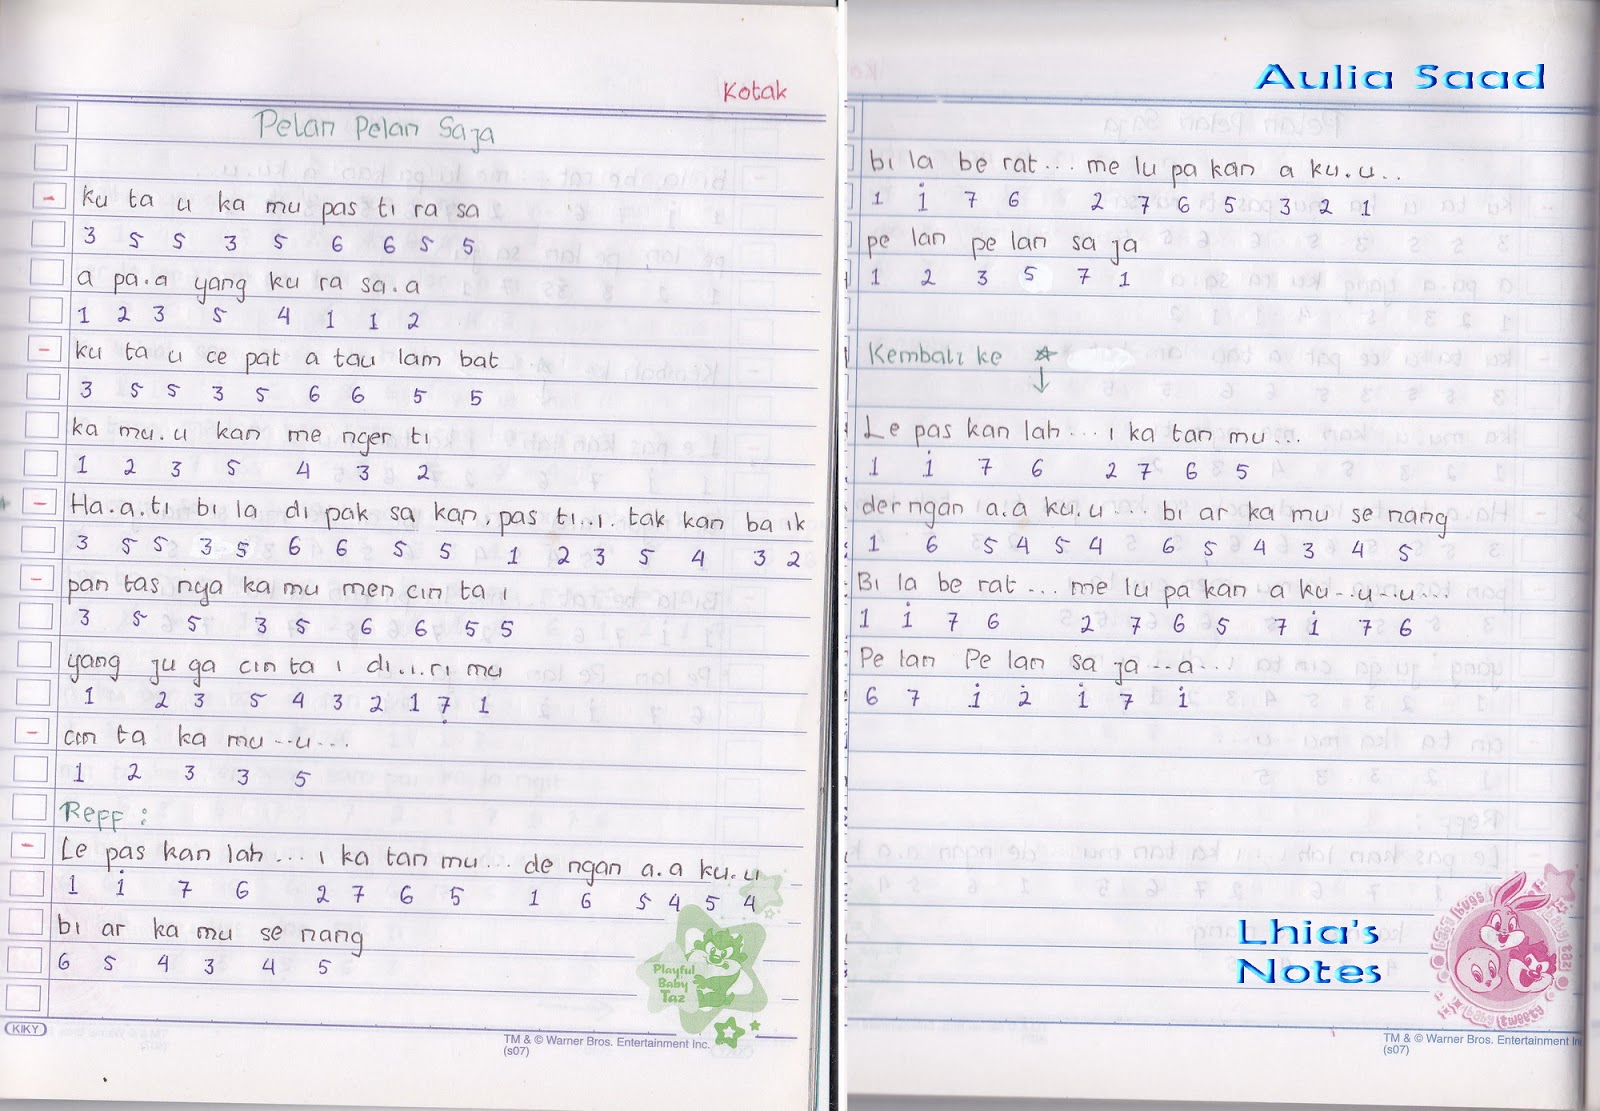 Kotak
Pelan Pelan Saja
ku ta u ka mu pas ti ra sa
3 5 5 3 5 6 6 5 5
a pa.a yang ku ra sa.a
1 2 3 5 4 1 1 2
ku ta u ce pat a tau lam bat
3 5 5 3 5 6 6 5 5
ka mu.u kan me nger ti
1 2 3 5 4 3 2
Ha.a.ti bi la di pak sa kan, pas ti..i. tak kan ba ik
3 5 5 3 5 6 6 5 5 1 2 3 5 4 3 2
pan tas nya ka mu men cin ta i
3 5 5 3 5 6 6 5 5
yang ju ga cin ta i di..i.ri mu
1 2 3 5 4 3 2 1 7̣ 1
cin ta ka mu --u...
1 2 3 3 5
Reff :
Le pas kan lah ... i ka tan mu... de ngan a.a ku.u
1 1̇ 7 6 2 7 6 5 1 6 5 4 5 4
bi ar ka mu se nang
6 5 4 3 4 5
Playful
Baby
Taz
KIKY
TM & © Warner Bros. Entertainment Inc.
(s07)
Aulia Saad
bi la be rat... me lu pa kan a ku.u..
1 1̇ 7 6 2 7 6 5 3 2 1
pe lan pe lan sa ja
1 2 3 5 7 1
Kembali ke ☆
↓
Le pas kan lah ... i ka tan mu...
1 1̇ 7 6 2 7 6 5
der ngan a.a ku.u... bi ar ka mu se nang
1 6 5 4 5 4 6 5 4 3 4 5
Bi la be rat ... me lu pa kan a ku--u--u...
1 1̇ 7 6 2 7 6 5 7 1̇ 7 6
Pe lan Pe lan sa ja--a...
6 7 1̇ 2̇ 1̇ 7 1̇
Lhia's
Notes
TM & © Warner Bros. Entertainment In
(s07)